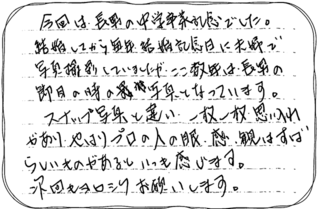 今回は長男の中学卒業記念でした。
結婚してから毎年結婚記念日に夫婦で
写真撮影していましたが、ここ数年は長男の
節目の時の写真となっています。
スナップ写真と違い一枚一枚思い入れ
があり、やはりプロの人の眼・感・観はすば
らしいものがあるといつも感じます。
次回もヨロシクお願いします。